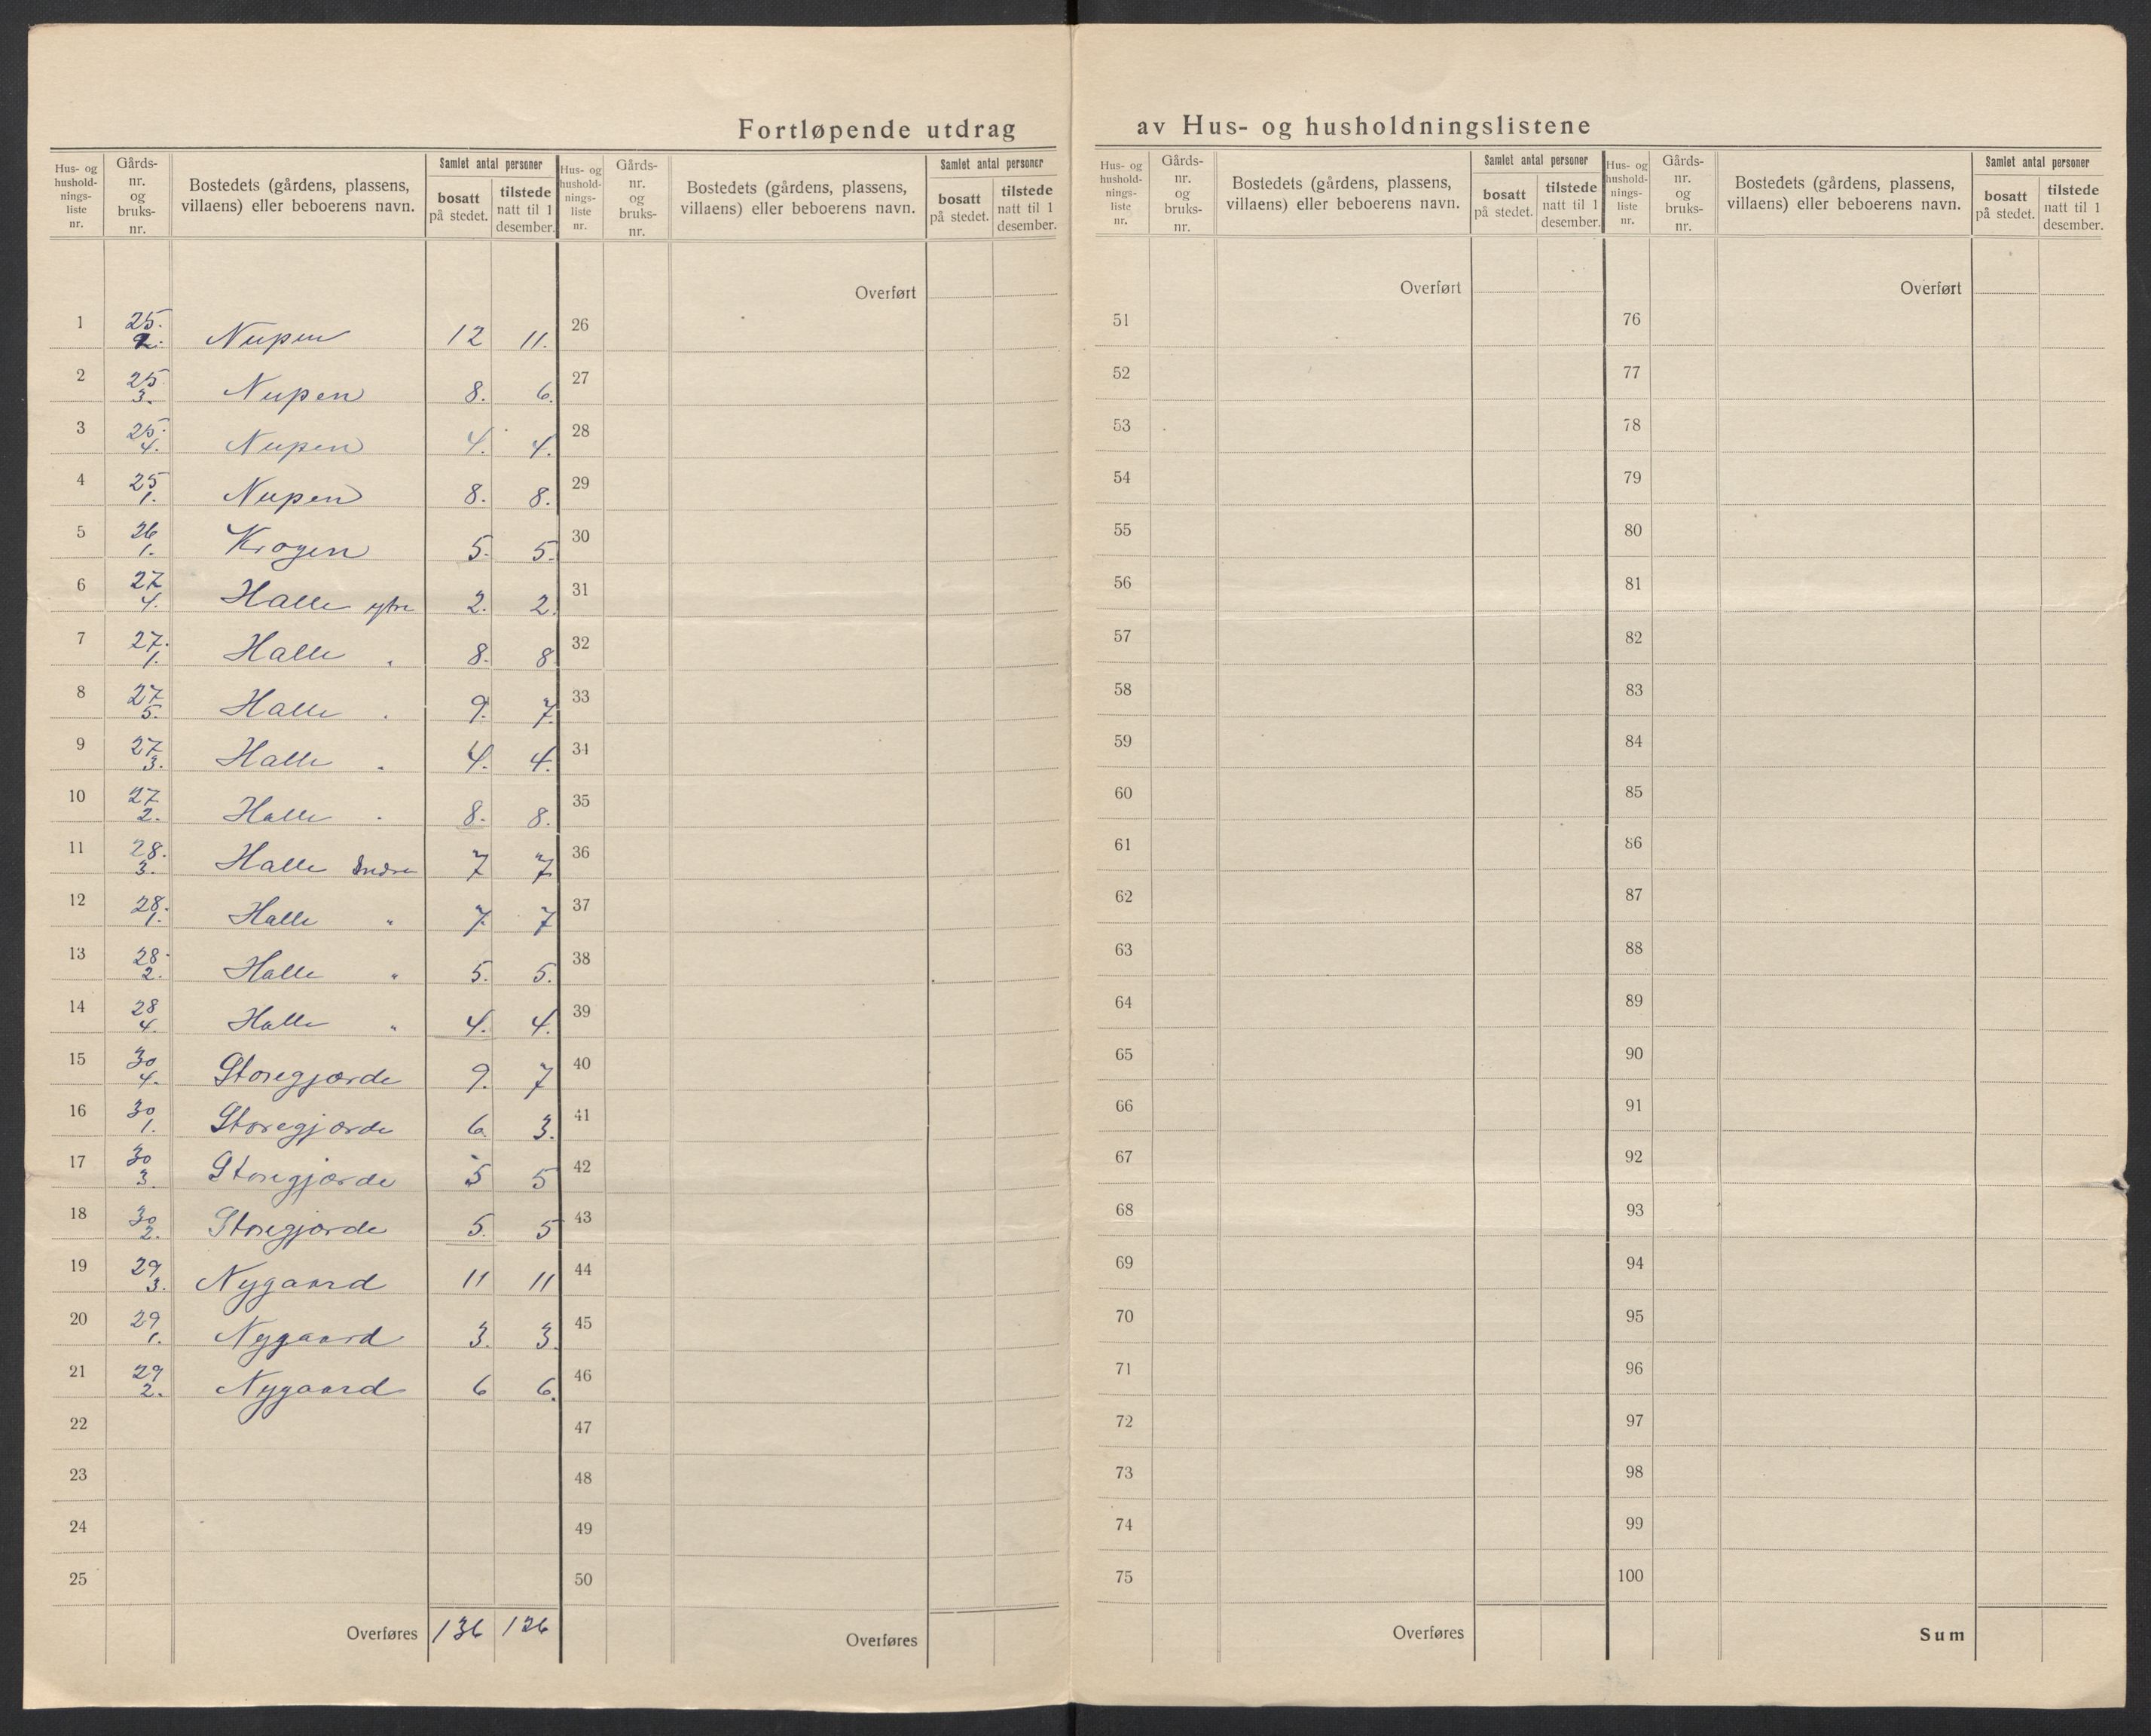 Fortløpende utdrag av Hus- og husholdningslistene
Hus- og hushold-nings-liste nr. | Gårds-nr. og bruks-nr. | Bostedets (gårdens, plassens, villaens) eller beboerens navn. | Samlet antal personer | bosatt på stedet. | tilstede natt til 1 desember.
Hus- og hushold-nings-liste nr. | Gårds-nr. og bruks-nr. | Bostedets (gårdens, plassens, villaens) eller beboerens navn. | Samlet antal personer | bosatt på stedet. | tilstede natt til 1 desember.
1 25. 2. Nupen 12 11.
2 25 3. Nupen 8. 6.
3 25. 4. Nupen 4. 4.
4 25 1. Nupen 8. 8.
5 26 1. Krogen 5. 5.
6 27 4. Halle ytre 2. 2.
7 27. 1. Halle " 8. 8
8 27 5. Halle " 9. 7.
9 27 3. Halle " 4. 4.
10 27 2. Halle " 8. 8.
11 28. 3. Halle Indre 7 7
12 28. 1. Halle " 7. 7
13 28. 2. Halle " 5. 5.
14 28 4. Halle " 4. 4.
15 30 4. Storegjærde 9. 7
16 30 1. Storegjærde 6. 3.
17 30 3. Storegjærde 5 5
18 30 2. Storegjærde 5. 5
19 29 3. Nygaard 11 11
20 29 1. Nygaard 3. 3.
21 29 2. Nygaard 6 6.
22
23
24
25
Overføres 136 126
Overført
26
27
28
29
30
31
32
33
34
35
36
37
38
39
40
41
42
43
44
45
46
47
48
49
50
Overføres
Hus- og hushold-nings-liste nr. | Gårds-nr. og bruks-nr. | Bostedets (gårdens, plassens, villaens) eller beboerens navn. | Samlet antal personer | bosatt på stedet. | tilstede natt til 1 desember.
Overført
51
52
53
54
55
56
57
58
59
60
61
62
63
64
65
66
67
68
69
70
71
72
73
74
75
Overføres
Hus- og hushold-nings-liste nr. | Gårds-nr. og bruks-nr. | Bostedets (gårdens, plassens, villaens) eller beboerens navn. | Samlet antal personer | bosatt på stedet. | tilstede natt til 1 desember.
Overført
76
77
78
79
80
81
82
83
84
85
86
87
88
89
90
91
92
93
94
95
96
97
98
99
100
Sum